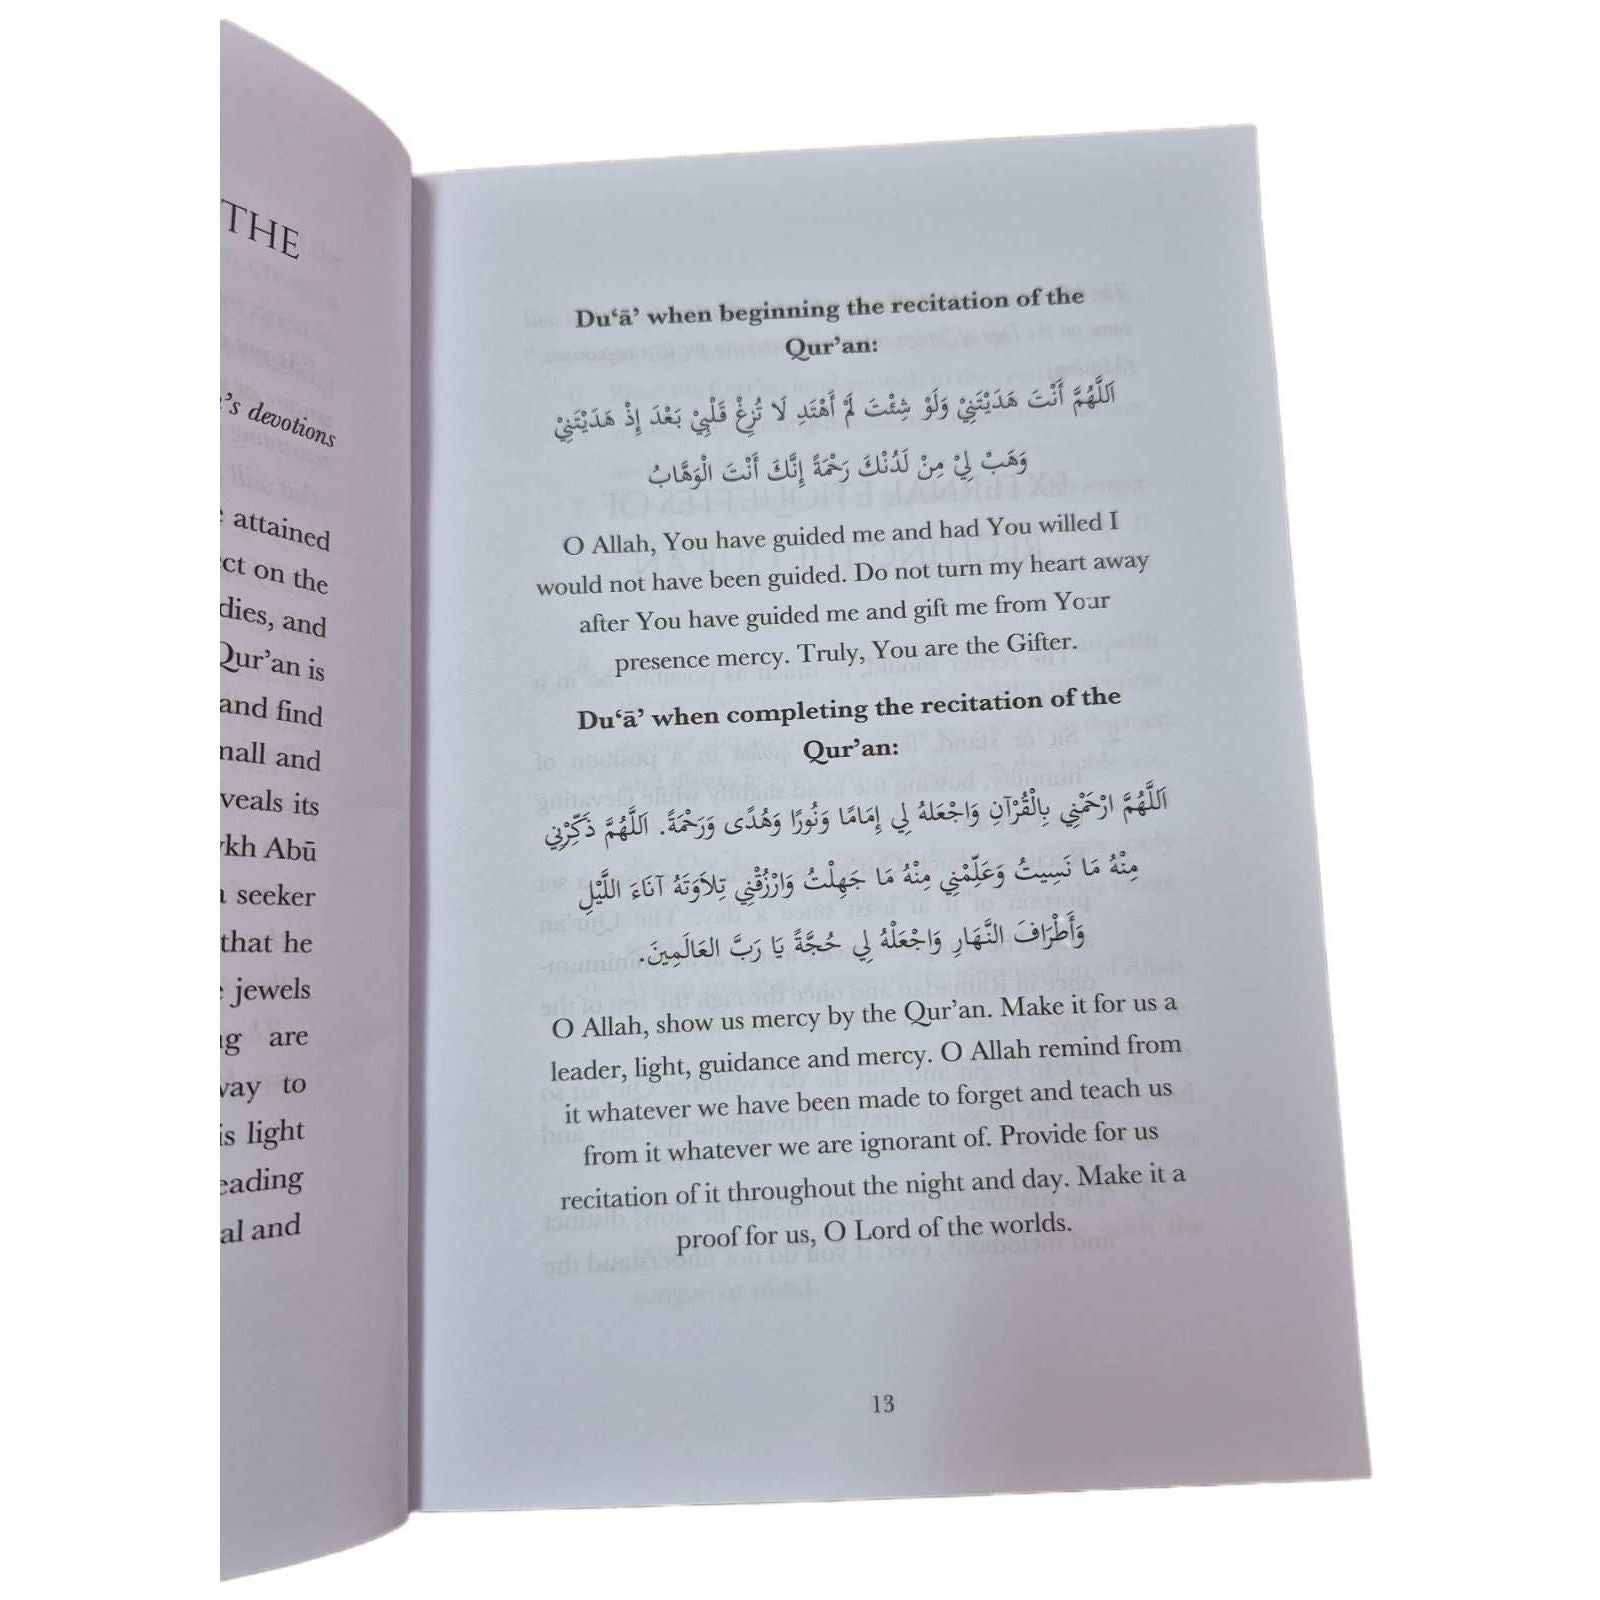 THE
's devotions
attained
ct on the
dies, and
Qur'an is
and find
nall and
veals its
ykh Abū
seeker
that he
jewels
are
way to
is light
eading
al and
Du‘ā’ when beginning the recitation of the
Qur’an:
اَللَّهُمَّ أَنْتَ هَدَيْتَنِيْ وَلَوْ شِئْتَ لَمْ أَهْتَدِ لَا تُزِغْ قَلْبِيْ بَعْدَ إِذْ هَدَيْتَنِيْ
وَهَبْ لِيْ مِنْ لَدُنْكَ رَحْمَةً إِنَّكَ أَنْتَ الْوَهَّابُ
O Allah, You have guided me and had You willed I
would not have been guided. Do not turn my heart away
after You have guided me and gift me from Your
presence mercy. Truly, You are the Gifter.
Du‘ā’ when completing the recitation of the
Qur’an:
اَللَّهُمَّ ارْحَمْنِي بِالْقُرْآنِ وَاجْعَلهُ لِي إِمَامًا وَنُورًا وَهُدًى وَرَحْمَةً. اَللَّهُمَّ ذَكِّرْنِي
مِنْهُ مَا نَسِيتُ وَعَلِّمْنِي مِنْهُ مَا جَهِلْتُ وَارْزُقْنِي تِلاَوَتَهُ آنَاءَ اللَّيْلِ
وَأَطْرَافَ النَّهَارِ وَاجْعَلْهُ لِي حُجَّةً يَا رَبَّ العَالَمِينَ.
O Allah, show us mercy by the Qur’an. Make it for us a
leader, light, guidance and mercy. O Allah remind from
it whatever we have been made to forget and teach us
from it whatever we are ignorant of. Provide for us
recitation of it throughout the night and day. Make it a
proof for us, O Lord of the worlds.
13